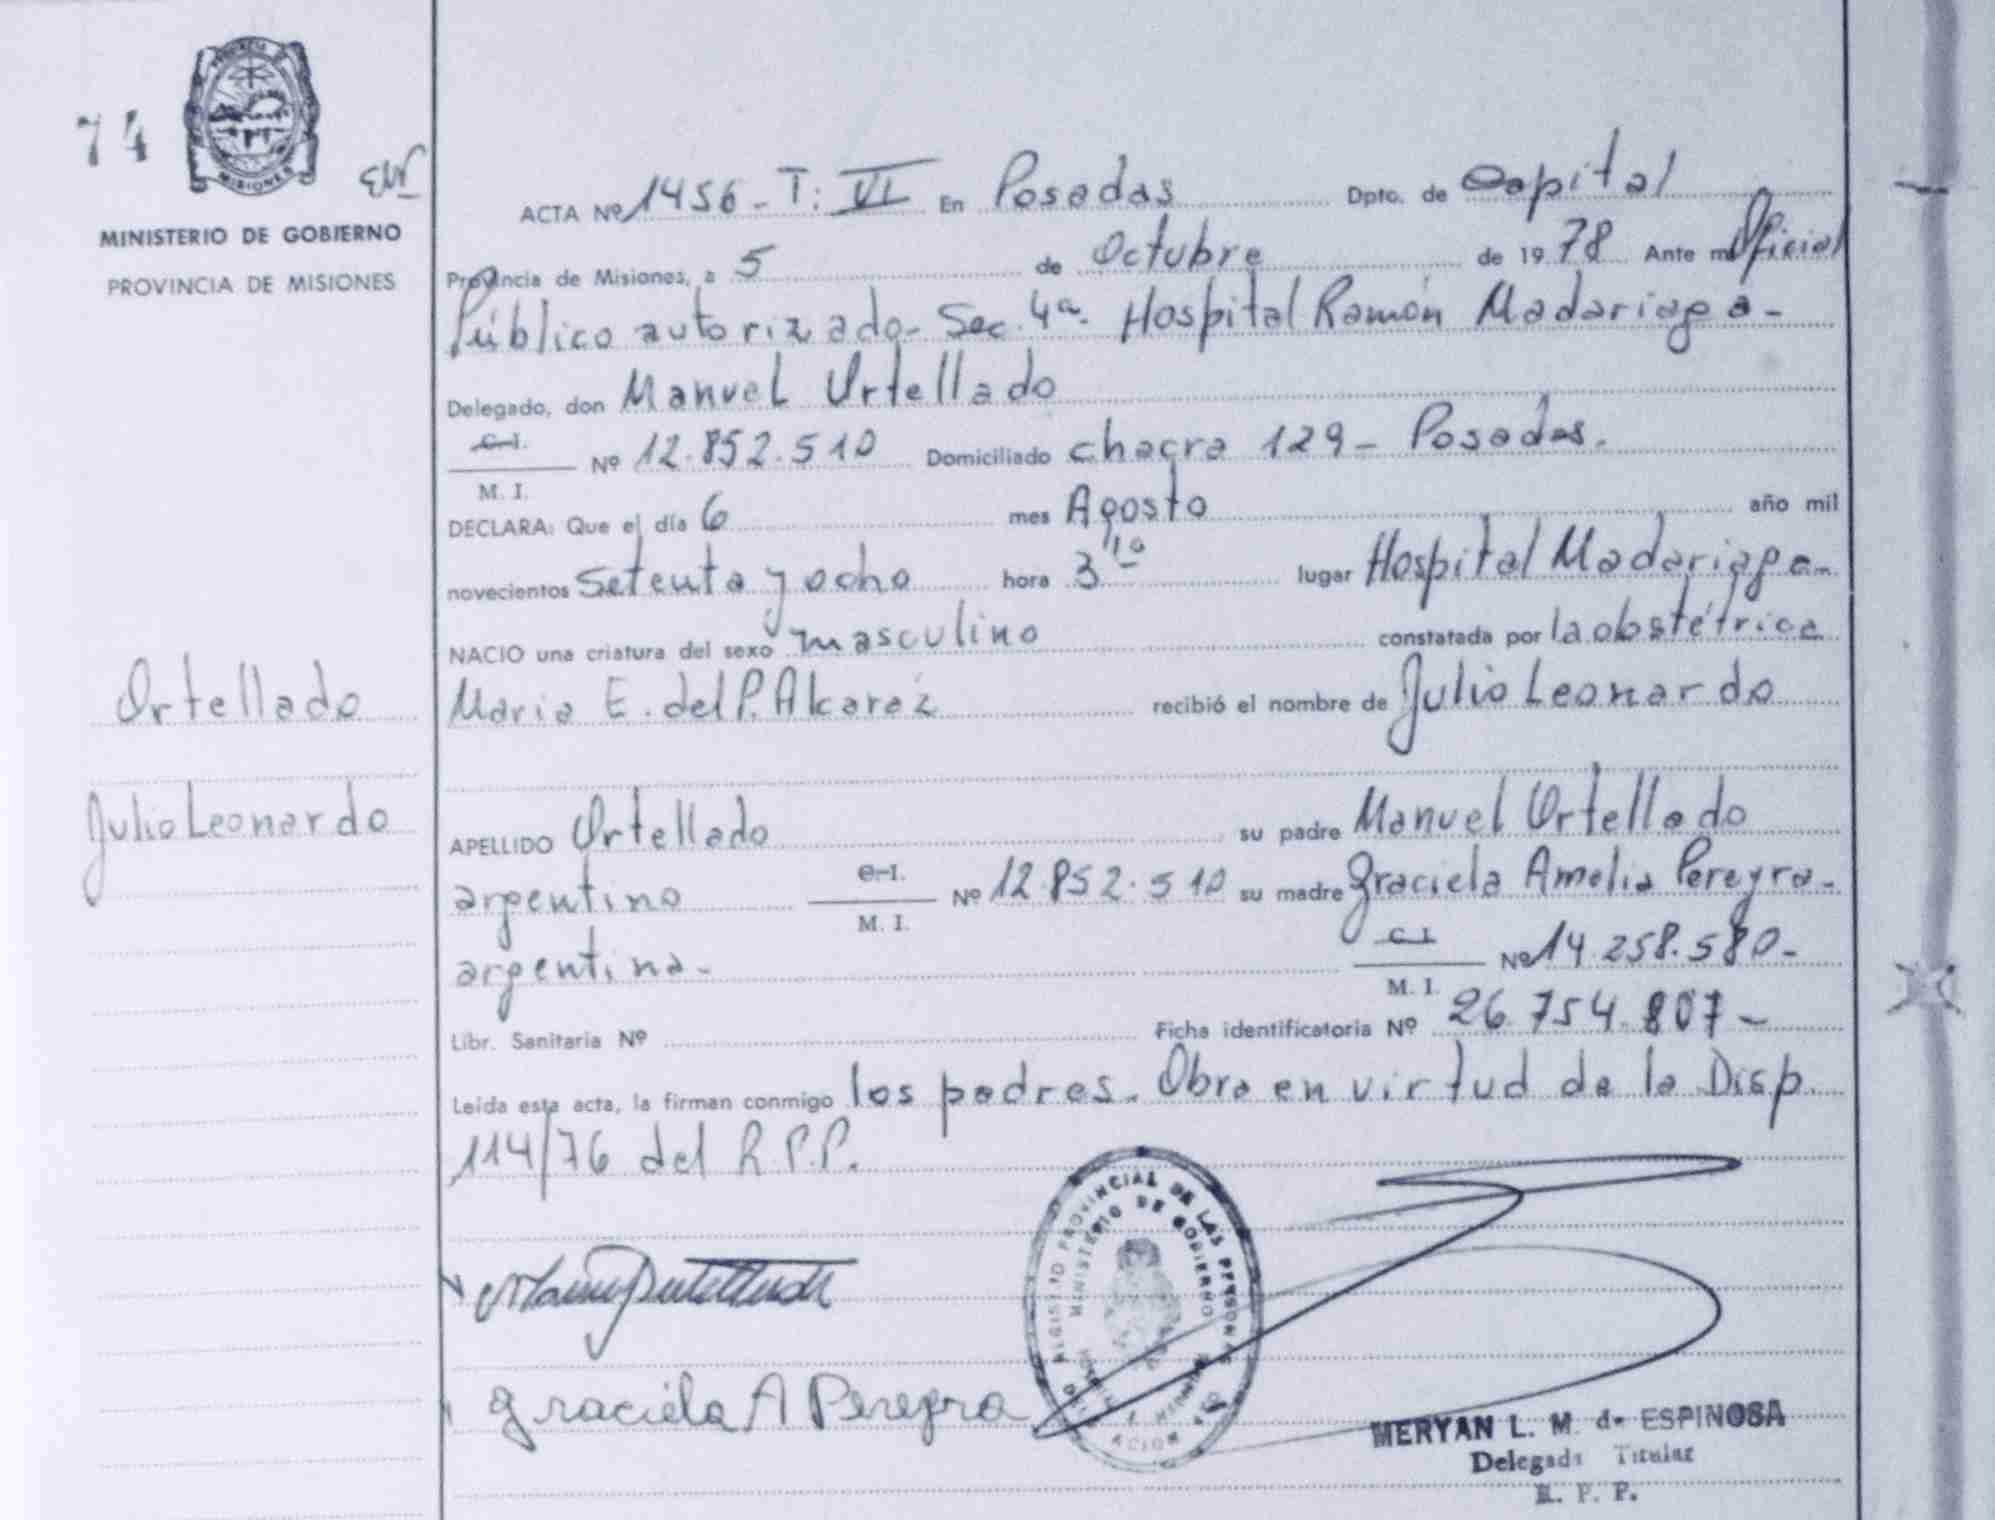 74
PROVINCIA DE
MISIONES
MINISTERIO DE GOBIERNO
PROVINCIA DE MISIONES
Ortellado
Julio Leonardo
ACTA Nº 1456 - T: VI En Posadas Dpto. de Capital
Provincia de Misiones, a 5 de Octubre de 1978 Ante mi Oficial
Público autorizado - Sec. 4ª. Hospital Ramón Madariaga -
Delegado, don Manuel Ortellado
C. I.
Nº 12.852.510 Domiciliado chacra 129 - Posadas.
M. I.
DECLARA: Que el día 6 mes Agosto año mil
novecientos setenta y ocho hora 3 10 lugar Hospital Madariaga -
NACIO una criatura del sexo masculino constatada por la obstétrica
Maria E. del P. Alcaráz recibió el nombre de Julio Leonardo
APELLIDO Ortellado su padre Manuel Ortellado
argentino C. I. Nº 12.852.510 su madre Graciela Amelia Pereyra -
M. I.
argentina - C. I. Nº 14.258.580 -
M. I.
Libr. Sanitaria Nº Ficha identificatoria Nº 26.754.807 -
Leída esta acta, la firman conmigo los padres. Obra en virtud de la Disp.
114/76 del R.P.P.
PROVINCIAL DE LAS PERSONAS
MINISTERIO DE GOBIERNO
Graciela A Pereyra
MERYAN L. M. de ESPINOSA
Delegada Titular
R. P. P.